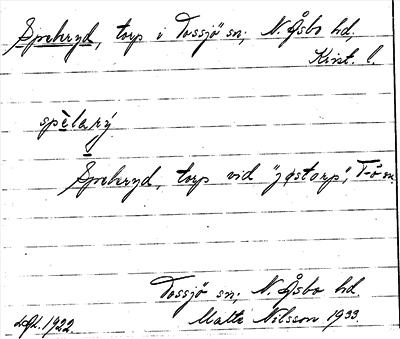 Spelryd, torp i Tossjö sn, N. Åsbo hd,
Krist. l.
spèlarý
Spelryd, torp vid "jøstorp", T-ö m.
Tossjö sn, N. Åsbo hd.
Malte Nilsson 1933.
1922